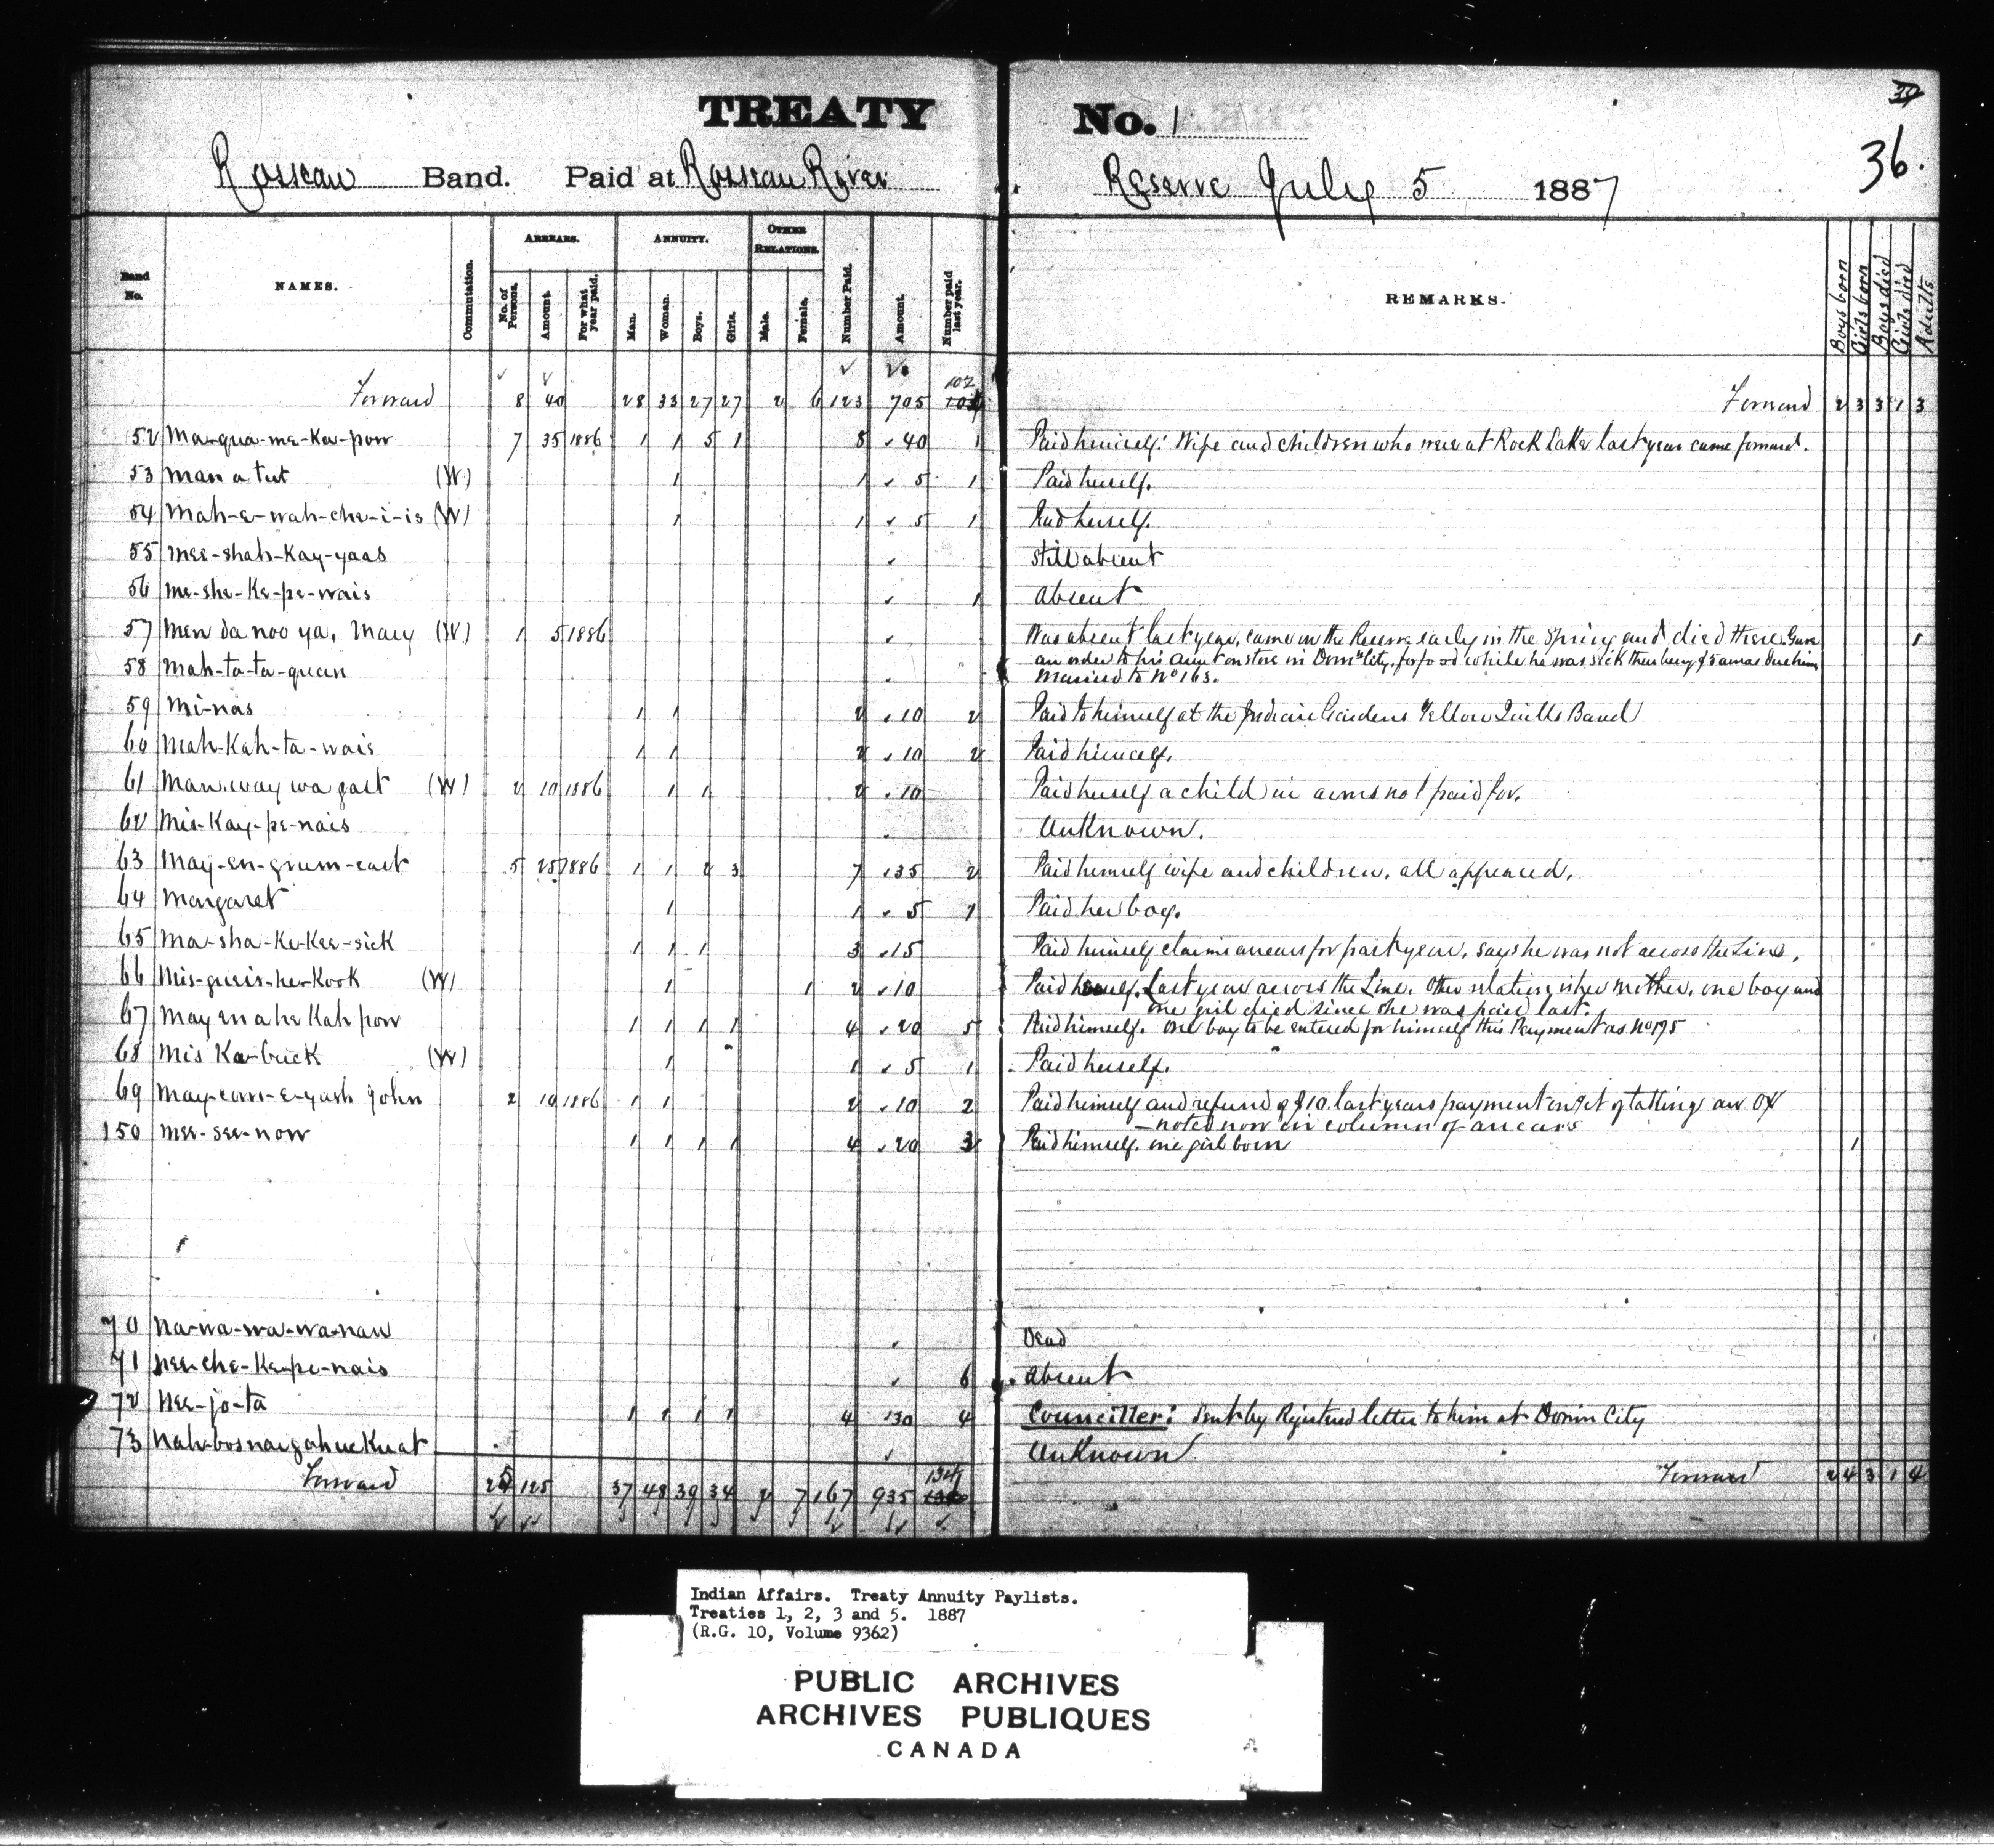 TREATY No. 1
36.
Rosseau Band. Paid at Rosseau River Reserve July 5 1887
Band No. NAMES. Commutation. ARREARS. No. of Persons. Amount. For what year paid. ANNUITY. Man. Woman. Boys. Girls. OTHER RELATIONS. Male. Female. Number Paid. Amount. Number paid last year. REMARKS. Boys born Girls born Boys died Girls died Adults
Forward 8 40 28 33 27 27 2 6 123 705 102 Forward 2 3 3 1 3
52 Ma-qua-me-ka-pow 7 35 1886 1 1 5 1 8 40 1 Paid himself: Wife and children who were at Rock Lake last year came forward.
53 Man a tut (W) 1 1 5 1 Paid herself.
54 Mah-e-wah-che-i-is (W) 1 1 5 1 Paid herself.
55 Mee-shah-Kay-yaas Still absent
56 Me-she-Ke-pe-wais 1 Absent
57 Men da noo ya, Mary (W) 1 5 1886 Was absent last year, came on the Reserve early in the Spring and died there. Gave 1
an order to his Aunt on store in Domn City, for food while he was sick there being $5 arrears due him
58 Mah-ta-ta-quan Married to No 163.
59 Mi-nas 1 1 2 10 2 Paid to himself at the Indian Gardens Yellow Quills Band
60 Mah-Kah-ta-wais 1 1 2 10 2 Paid himself.
61 Man.way wa gast (W) 2 10 1886 1 1 2 10 Paid herself a child in arms not paid for.
62 Mis-Kay-pe-nais Unknown.
63 May-en-grum-east 5 25 1886 1 1 2 3 7 35 2 Paid himself wife and children, all appeared.
64 Margaret 1 1 5 1 Paid her boy.
65 Ma-sha-Ke-Kee-sick 1 1 1 3 15 Paid himself claims arrears for past year, says he was not across the Line.
66 Mis-queis-he-Kook (W) 1 1 2 10 Paid herself. Last year across the Line. Other relation is her mother, one boy and
one girl died since she was paid last.
67 May en a he Kah pow 1 1 1 1 4 20 5 Paid himself. One boy to be entered for himself this Payment as No 195
68 Mis Ka-buck (W) 1 1 5 1 Paid herself.
69 May-com-e-gash John 2 10 1886 1 1 2 10 2 Paid himself and refund of $10 last years payment on a/ct of taking an Ox
- noted now in column of arrears
150 Mee-see-now 1 1 1 1 4 20 3 Paid himself. one girl born 1
70 Na-wa-wa-wa-naw Dead
71 Nee-che-Ke-pe-nais 6 Absent
72 Nee-jo-ta 1 1 1 1 4 30 4 Councillor: Sent by Registered letter to him at Domin City
73 Unknown
Forward 25 125 37 48 39 34 2 7 167 935 134 Forward 2 4 3 1 4
Indian Affairs. Treaty Annuity Paylists.
Treaties 1, 2, 3 and 5. 1887
(R.G. 10, Volume 9362)
PUBLIC ARCHIVES
ARCHIVES PUBLIQUES
CANADA